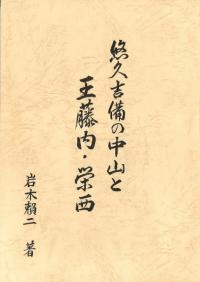 悠久吉備の中山と
王藤内・栄西
岩木賴二 著